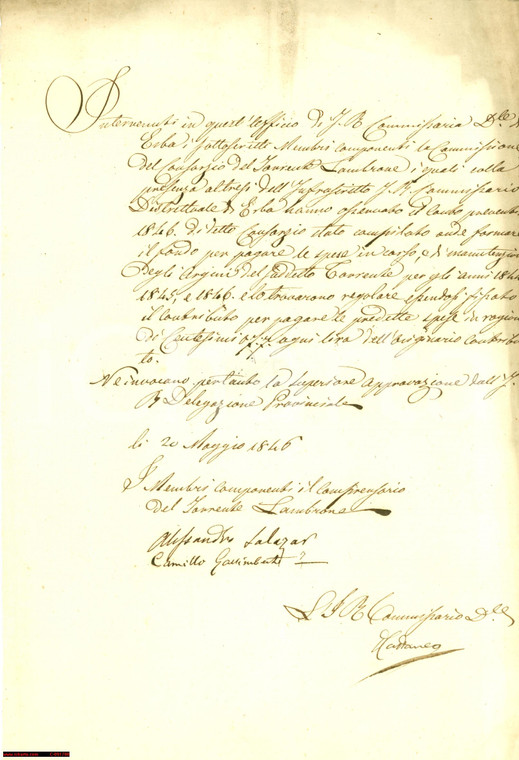 Intervenuti in quest'Ufficio di I. R. Commissaria D.le di
Erba i sottoscritti Membri componenti la Commissione
del Consorzio del Torrente Lambrone i quali colla
presenza altresì dell'Infrascritto I. R. Commissario
Distrettuale di Erba hanno esaminato il conto preventivo
1846. di detto Consorzio stato compilato onde formare
il fondo per pagare le spese in corso, e di manutenzione
degli Argini del suddetto Torrente per gli anni 1844
1845, e 1846. e lo trovarono regolare essendosi fissato
il contributo per pagare le predette spese in ragione
di Centesimi ogni lira dell'originario contribu
to.
Ne invocano pertanto la superiore approvazione dall'I.
R. Delegazione Provinciale
li 20 Maggio 1846
I Membri componenti il comprensorio
del Torrente Lambrone
Alessandro Salazar
Camillo
L'I. R. Commissario D.le
Cattaneo